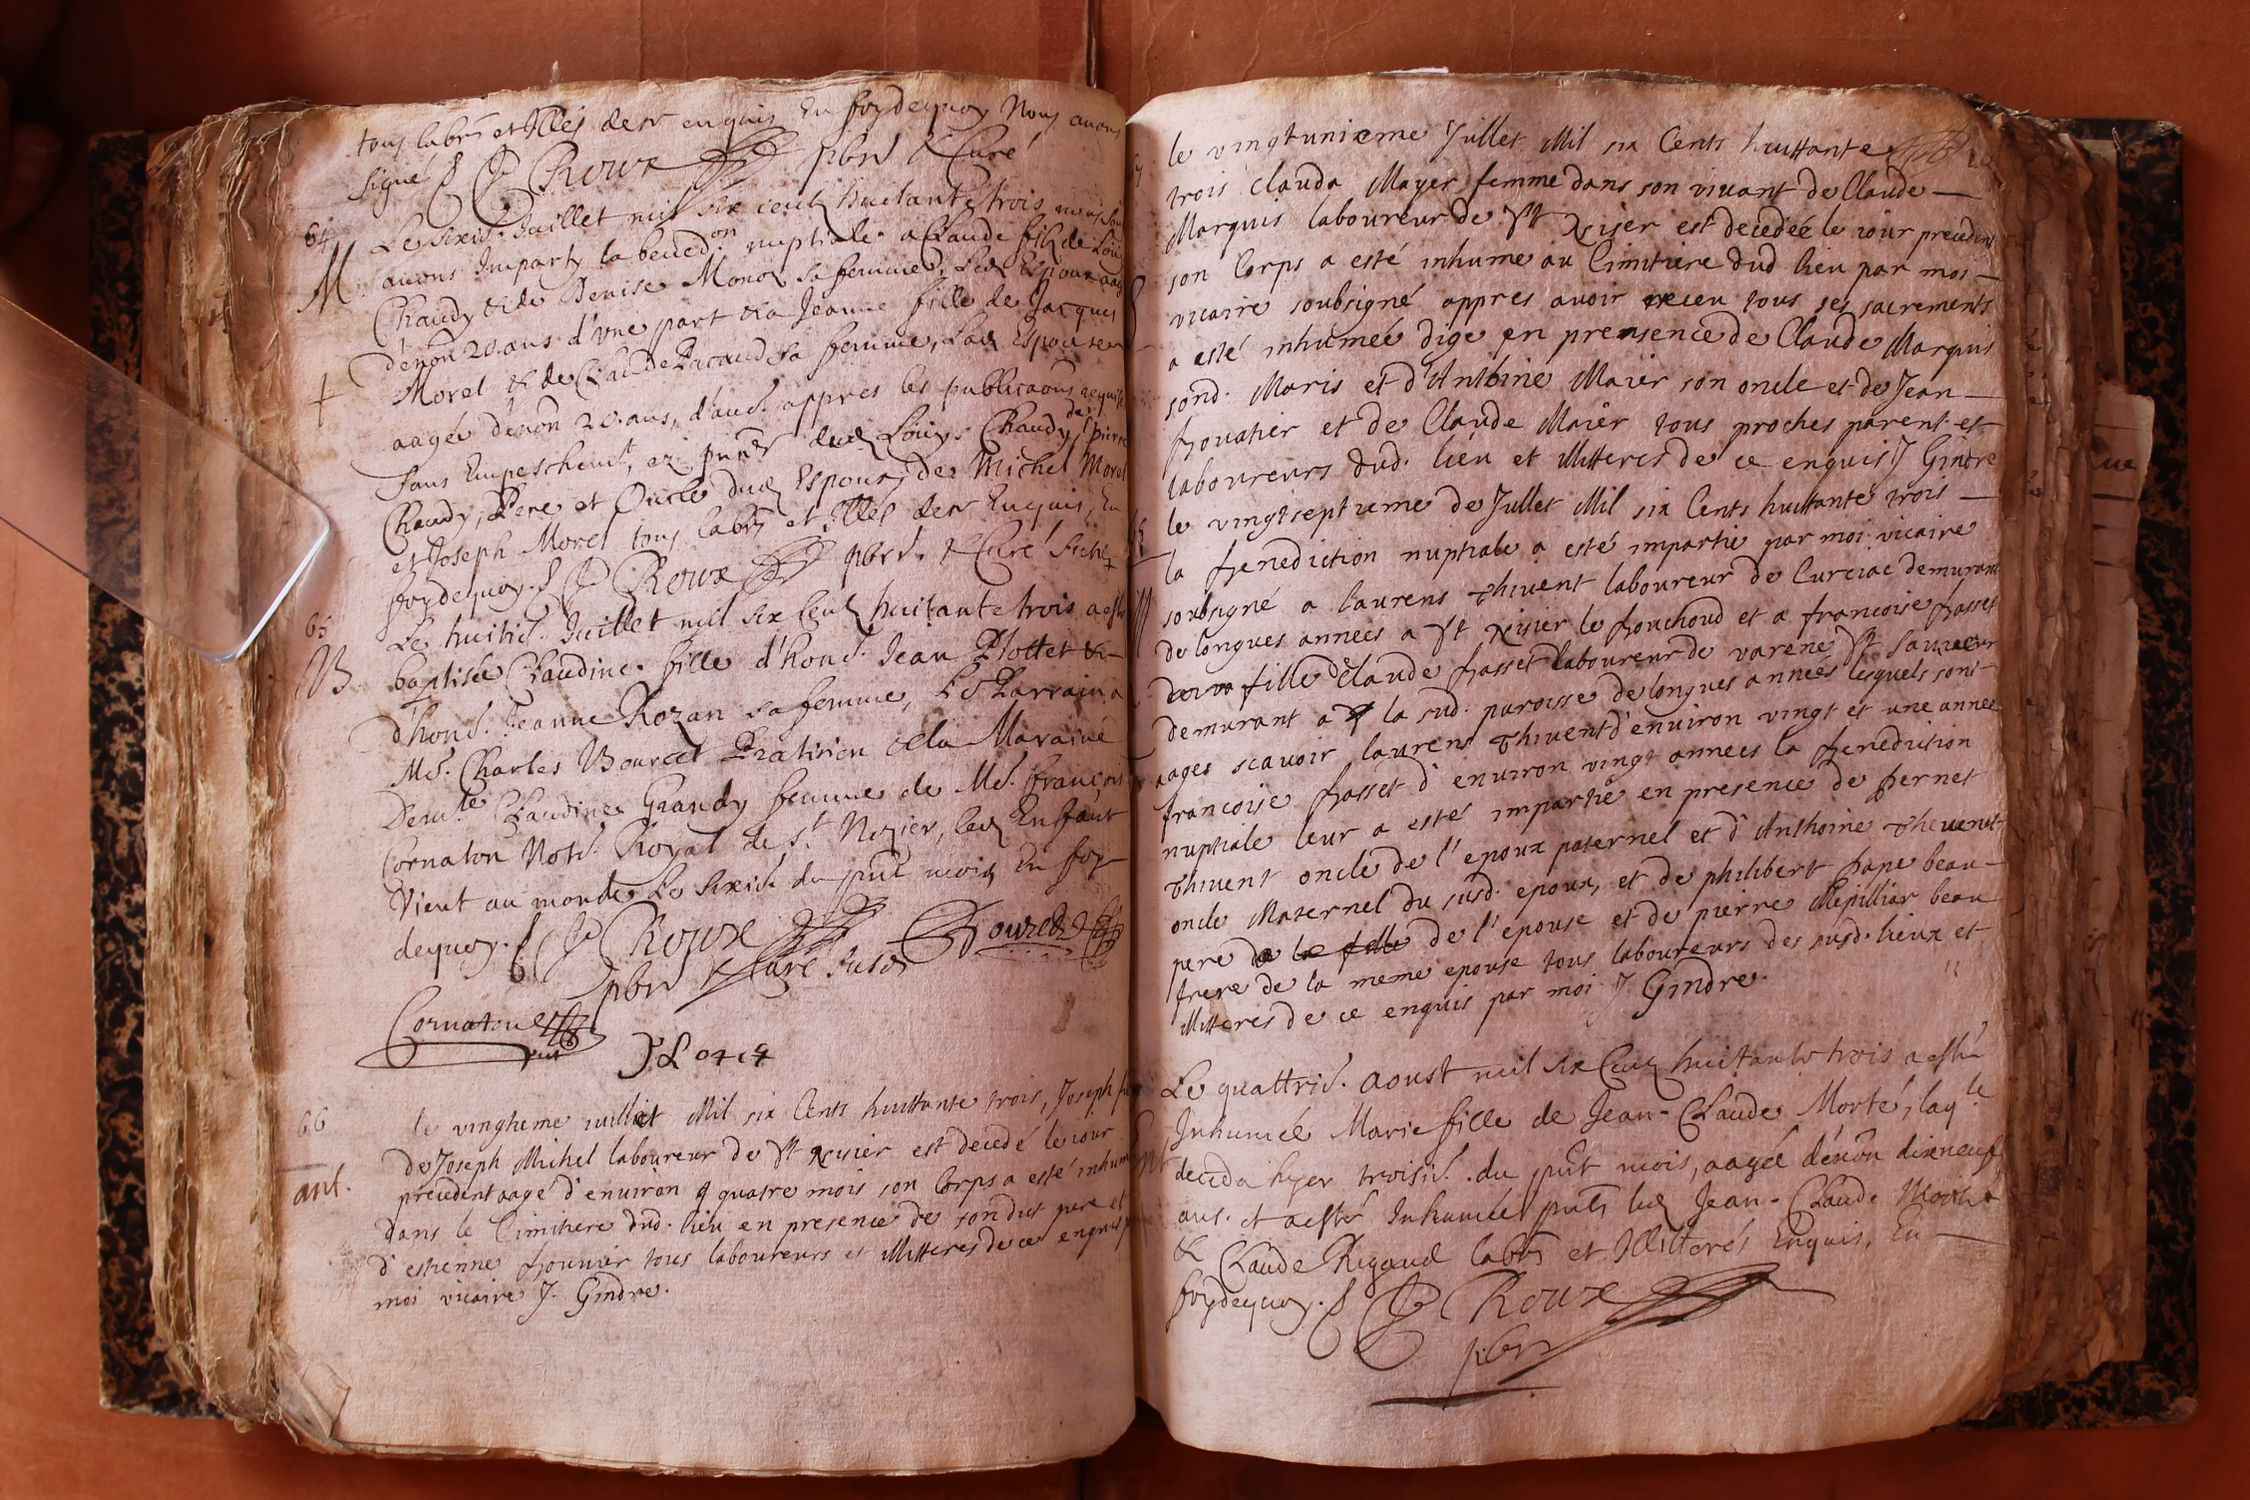 tous labrs et Illés de ce enquis En foydequoy Nous avons
signé J Roux pbre & Curé
64
M
Le sixie. Juillet mil six centz huitante trois nous
avons Imparty la bened.on nuptiale a Claude filz de Loüis
Chaudy & de Denise Monot sa femme, led Espoux aagé
d'enon 20 ans d'vne part & a Jeanne fille de Jacques
Morel & de Clau.de Picaud sa femme, lad Espouse
aagée d'enon 20. ans, d'aud. appres les publicaons requises
sans Empeschemt, ez pntes dud Loüys Chaudy, de Pierre
Chaudy, Pere et Oncle dud Espoux, de Michel Morel
et Joseph Morel tous labrs et Illés de ce Enquis, En
foydequoy. J Roux pbre. & Curé susd
65
B
Le huitie. Juillet mil six centz huitante trois a esté
baptisée Claudine fille d'hon.e Jean Plottet &
d'hon.e Jeanne Rozan sa femme, Le Parrain a
Me. Charles Bourcet Praticien & la Maraine
Dem.lle Claudine Grandy femme de Me. françois
Cornaton Note. Royal de St Nizier, led Enfant
Vient au monde Le sixie. du pnt mois En foy
dequoy. J Roux
pbre & Curé susd Bourcet
Cornaton
66
ant.
le vingtieme iuilliet Mil six Cents huittante trois, Joseph
de Joseph Michel laboureur de St Nisier est decedé le iour
precedent aagé d'environ quatre mois son Corps a esté inhumé
dans le Cimitiere dud. lieu en presence de sondit pere et
d'estienne bouvier tous laboureurs et illitteres de ce enquis
moi vicaire J. Gindre.
le vingtunieme Jullet Mil six Cents huittante
trois clauda Mayer femme dans son vivant de Claude
Marquis laboureur de St Nisier est decedée le iour precedent
son Corps a esté inhume au Cimitiere dud lieu par moi
vicaire soubsigné appres avoir receu tous ses sacrements
a esté inhumée dige en presence de Claude Marquis
sond. Maris et d'Antoine Maïer son oncle et de Jean
bouatier et de Claude Maïer tous proches parent et
laboureurs dud. lieu et illitteres de ce enquis J Gindre
le vingtseptieme de Jullet Mil six Cents huittante trois
la benediction nuptiale a esté impartie par moi vicaire
soubsigné a laurens thivent laboureur de Curciac demurant
de longues annees a St Nisier le bouchoud et a francoise basset
fille de Claude basset laboureur de varene St Sauveur
demurant a la sud. paroisse de longues annees lesquels sont
aages scavoir laurens thivent d'environ vingt et une annee
francoise basset d'environ vingt annees la benediction
nuptiale leur a estés impartie en presence de bernet
thivent oncle de l'epoux paternel et d'Anthoine thevenet
oncle Maternel du susd. epoux, et de philibert pape beau
pere de la fille de l'epouse et de pierre Mepilliar beau
frere de la meme epouse tous laboureurs des susd. lieux et
illitteres de ce enquis par moi J Gindre.
Le quattrie. aoust mil six centz huitante trois a esté
Inhumée Marie fille de Jean-Claude Morte, laq.le
deceda hyer troisie. du pnt mois, aagée d'enon dixneuf
ans. et a esté Inhumée pnts led Jean-Claude Morte
& Claude Rigaud labrs et Illitterés Enquis, En
foydequoy. J Roux
pbre